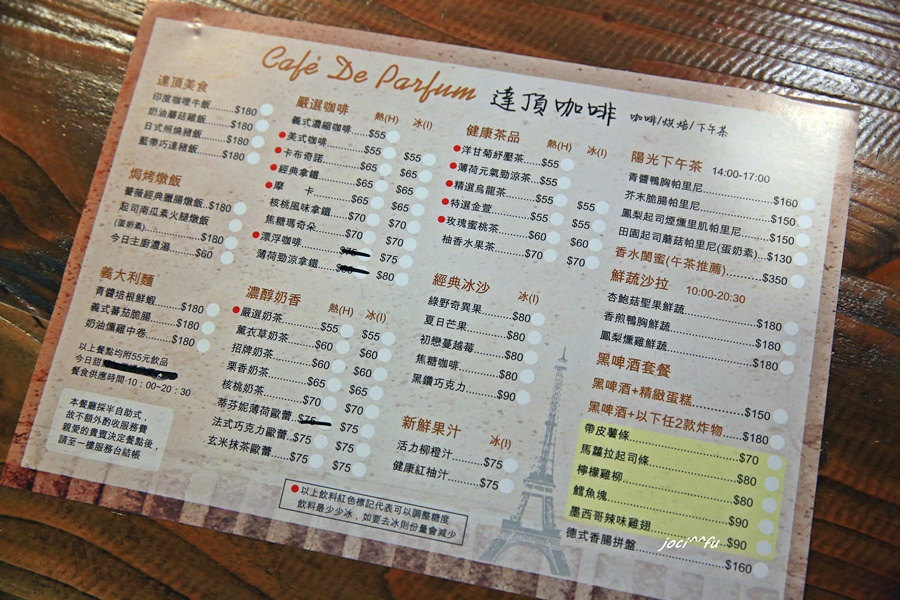 Café De Parfum 達頂咖啡 咖啡/烘焙/下午茶
達頂美食
印度咖哩牛飯 $180
奶油蘑菇雞飯 $180
日式照燒豬飯 $180
藍帶巧達豬飯 $180
焗烤燉飯
薔薇經典臘腸燉飯 $180
起司南瓜素火腿燉飯
(蛋奶素) $180
今日主廚濃湯 $60
義大利麵
青醬培根鮮蝦 $180
義式蕃茄脆腸 $180
奶油燻雞中卷 $180
以上餐點均附55元飲品
今日甜
餐食供應時間10:00~20:30
本餐廳採半自助式,
故不額外酌收服務費
親愛的貴賓決定餐點後
請至一樓服務台結帳
嚴選咖啡 熱(H) 冰(I)
義式濃縮咖啡 $55
美式咖啡 $55 $55
卡布奇諾 $65 $65
經典拿鐵 $65 $65
摩 卡 $65 $65
核桃風味拿鐵 $70 $70
焦糖瑪奇朵 $70 $70
漂浮咖啡 $75
薄荷勁涼拿鐵 $80
濃醇奶香 熱(H) 冰(I)
嚴選奶茶 $55 $55
薰衣草奶茶 $60 $60
招牌奶茶 $60 $60
栗香奶茶 $65 $65
核桃奶茶 $70 $70
蒂芬妮薄荷歐蕾 $75 $70
法式巧克力歐蕾 $70 $75
玄米抹茶歐蕾 $75 $75
健康茶品 熱(H) 冰(I)
洋甘菊紓壓茶 $55
薄荷元氣勁涼茶 $55
精選烏龍茶 $55 $55
特選金萱 $55 $55
玫瑰蜜桃茶 $60 $60
柚香水果茶 $70 $70
經典冰沙 冰(I)
綠野奇異果 $80
夏日芒果 $80
初戀蔓越莓 $80
焦糖咖啡 $80
黑鑽巧克力 $90
新鮮果汁 冰(I)
活力柳橙汁 $75
健康紅柚汁 $75
以上飲料紅色標記代表可以調整糖度
飲料最少少冰,如要去冰則份量會減少
陽光下午茶 14:00-17:00
青醬鴨胸帕里尼 $160
芥末脆腸帕里尼 $150
鳳梨起司煙燻里肌帕里尼 $150
田園起司蘑菇帕里尼(蛋奶素) $130
香水閨蜜(午茶推薦) $350
鮮蔬沙拉 10:00-20:30
杏鮑菇聖果鮮蔬 $180
香煎鴨胸鮮蔬 $180
鳳梨燻雞鮮蔬 $180
黑啤酒套餐
黑啤酒+精緻蛋糕 $150
黑啤酒+以下任2款炸物 $180
帶皮薯條 $70
馬蘿拉起司條 $80
檸檬雞柳 $80
鱈魚塊 $90
墨西哥辣味雞翅 $90
德式香腸拼盤 $160
joci^^fu